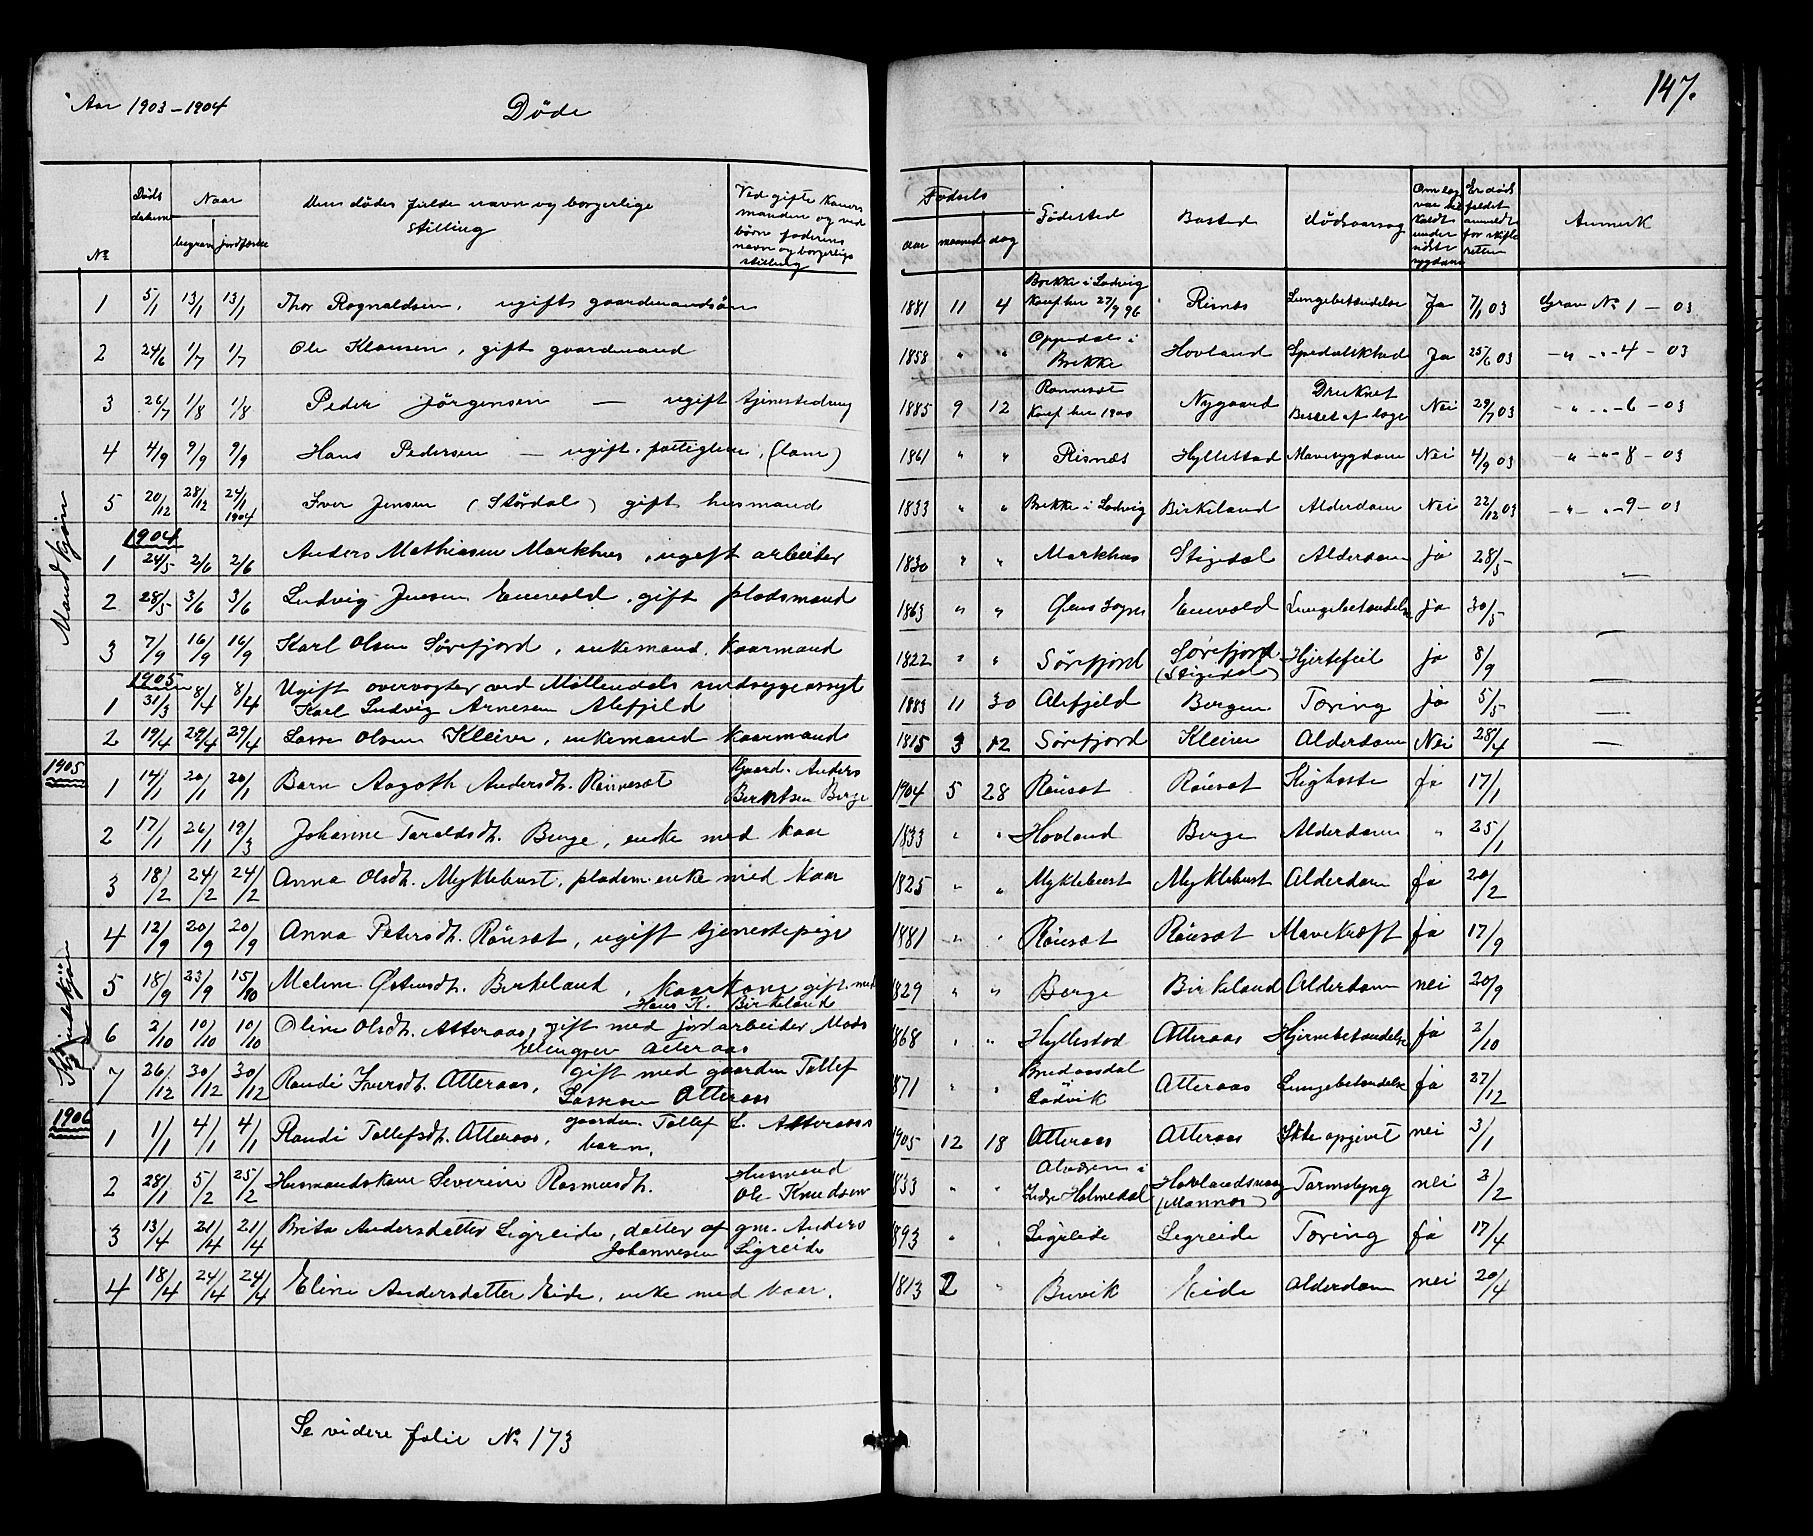 Aar 1903-1904
Døde
147.
No
Døds datum
Naar
begrav. jordfæstet
Den dødes fulde navn og borgerlige stilling
Ved gifte koner manden og ved børn faderens navn og borgerlige stilling
Fødsels
aar maaned dag
Fødested
Bosted
Dødsaarsag
Om læge var tilkaldt under sidste sygdom
Er døds faldet anmeldt for skifteretten
Anmerk
Mandkjøn
1 5/1 13/1 13/1 Thor Ragnaldsen, ugift gaardmandsøn 1881 11 4 Brekke i Ladvig Konf. her 27/9 96 Risnes Lungebetændelse Ja 7/1 03 Grav No 1 - 03
2 24/6 1/7 1/7 Ole Klausen, gift gaardmand 1858 " " Oppedal i Brekke Hovland Spedalskhed Ja 25/6 03 - " - " - 4 - 03
3 26/7 1/8 1/8 Peder Jørgensen - ugift tjenestedreng 1885 9 12 Rønneset Konf. her 1900 Nygaard Druknet Nei 29/7 03 - " - " - 6 - 03
4 4/9 9/9 9/9 Hans Pedersen - ugift. fattiglem, (lam) 1861 " " Risnæs Hyllestad Mavesygdom Nei 4/9 03 - " - " - 8 - 03
5 20/12 28/12 24/1 1904 Iver Jensen (Størdal) gift husmand 1833 " " Brekke i Ladvig Birkeland Alderdom Nei 22/12 03 - " - " - 9 - 03
1904
1 24/5 2/6 2/6 Anders Mathiasen Markhus, ugift arbeider 1830 " " Markhus Stigedal Alderdom ja 28/5 -
2 28/5 3/6 3/6 Ludvig Jensen Enevold, gift pladsmand 1863 " " Øens Sogn Enevold Lungebetændelse ja 30/5 -
3 7/9 16/9 16/9 Karl Olsen Sørefjord, enkemand, kaarmand 1822 " " Sørefjord Sørefjord (Stigedal) Hjertefeil ja 8/9 -
1905
1 31/3 8/4 8/4 Ugift overvogter ved Møllendals sindsygeasyl
Karl Ludvig Arnesen Alefjeld 1883 11 30 Alefjeld Bergen Tæring ja 5/5 -
2 19/4 29/4 29/4 Lasse Olsen Kleiven, enkemand kaarmand 1815 3 12 Sørefjord Kleiven Alderdom Nei 28/4 -
Kvindekjøn
1905
1 14/1 20/1 20/1 Barn Aagoth Andersdt. Rønneset Gaardm. Anders Berntsen Berge 1904 5 28 Rønset Rønset Kighoste ja 17/1
2 17/1 26/1 19/3 Johanne Taraldsdt. Berge, enke med kaar 1833 " " Hovland Berge Alderdom " 25/1
3 18/2 24/2 24/2 Anna Olsdt. Myklebust, pladsm. enke med kaar 1825 " " Myklebust Myklebust Alderdom ja 20/2
4 12/9 20/9 20/9 Anna Petersdt. Rönset, ugift tjenestepige 1881 " " Rönset Rönset Mavekræft ja 17/9
5 18/9 23/9 15/10 Malene Østensdt. Birkeland, kaarkone gift med
Hans K. Birkeland 1829 " " Berge Birkeland Alderdom nei 20/9
6 2/10 10/10 10/10 Oline Olsdt. Atteraas, gift med jordarbeider Mads
Elingsen Atteraas 1868 " " Hyllestad Atteraas Hjernebetændelse ja 2/10
7 26/12 30/12 30/12 Randi Iversdt. Atteraas, gift med gaardm Tollef
Lassesen Atteraas 1871 " " Ladvik Atteraas Lungebetændelse ja 27/12
1906
1 1/1 4/1 4/1 Randi Tollefsdt. Atteraas, gaardm. Tollef L. Atteraas's
barn. 1905 12 18 Atteraas Atteraas Ikke opgivet nei 3/1
2 28/1 5/2 25/2 Husmandskone Severine Rasmusdt. Husmand Ole Knudsen 1833 " " Indre Holmedal (Mannes) Tarmslyng nei 3/2
3 13/4 21/4 21/4 Brita Andersdatter Ligreide, datter af gm. Anders
Johannesen Ligreide 1893 " " Ligreide Ligreide Tæring ja 17/4
4 18/4 24/4 24/4 Eline Andersdatter Eide, enke med kaar. 1813 2 " Buvik Eide Alderdom nei 20/4
Se videre folie No 173